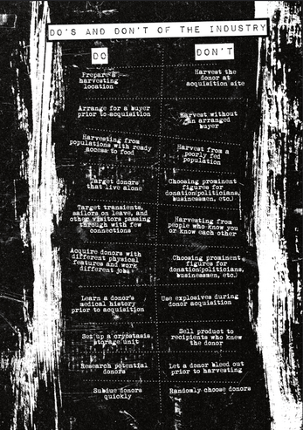 DO'S AND DON'T OF THE INDUSTRY
DO
DON'T
Prepare a
harvesting
location
Harvest the
donor at
acquisition site
Arrange for a buyer
prior to acquisition
Harvest without
an arranged
buyer
Harvesting from
populations with ready
access to food
Harvest from a
poorly fed
population
Target donors
that live alone
Choosing prominent
figures for
donation(politicians,
businessmen, etc.)
Target transients,
sailors on leave, and
other visitors passing
through with few
connections
Harvesting from
people who know you
or know each other
Acquire donors with
different physical
features and work
different jobs
Choosing prominent
figures for
donation(politicians,
businessmen, etc.)
Learn a donor's
medical history
prior to acquisition
Use explosives during
donor acquisition
Set up a cryostasis
storage unit
Sell product to
recipients who knew
the donor
Research potential
donors
Let a donor bleed out
prior to harvesting
Subdue donors
quickly
Randomly choose donors